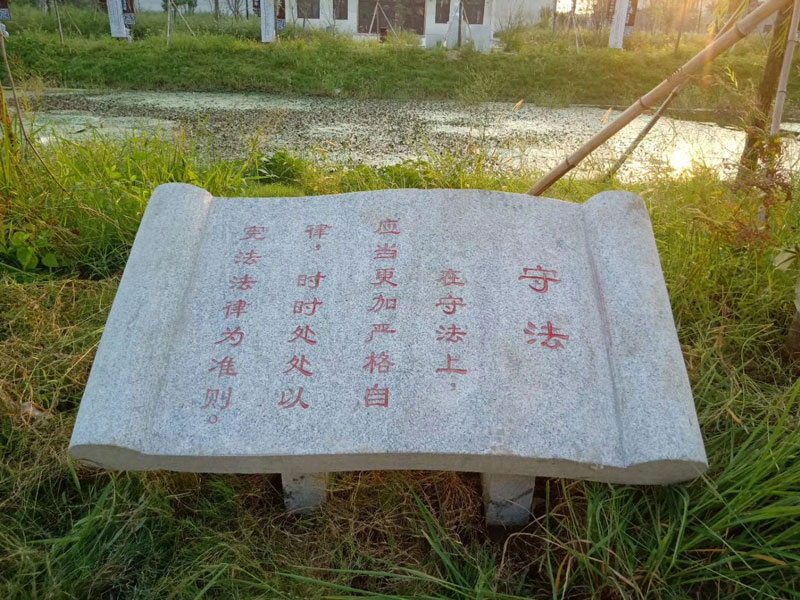 守法
在守法上，
应当更加严格自
律，时时处处以
宪法法律为准则。